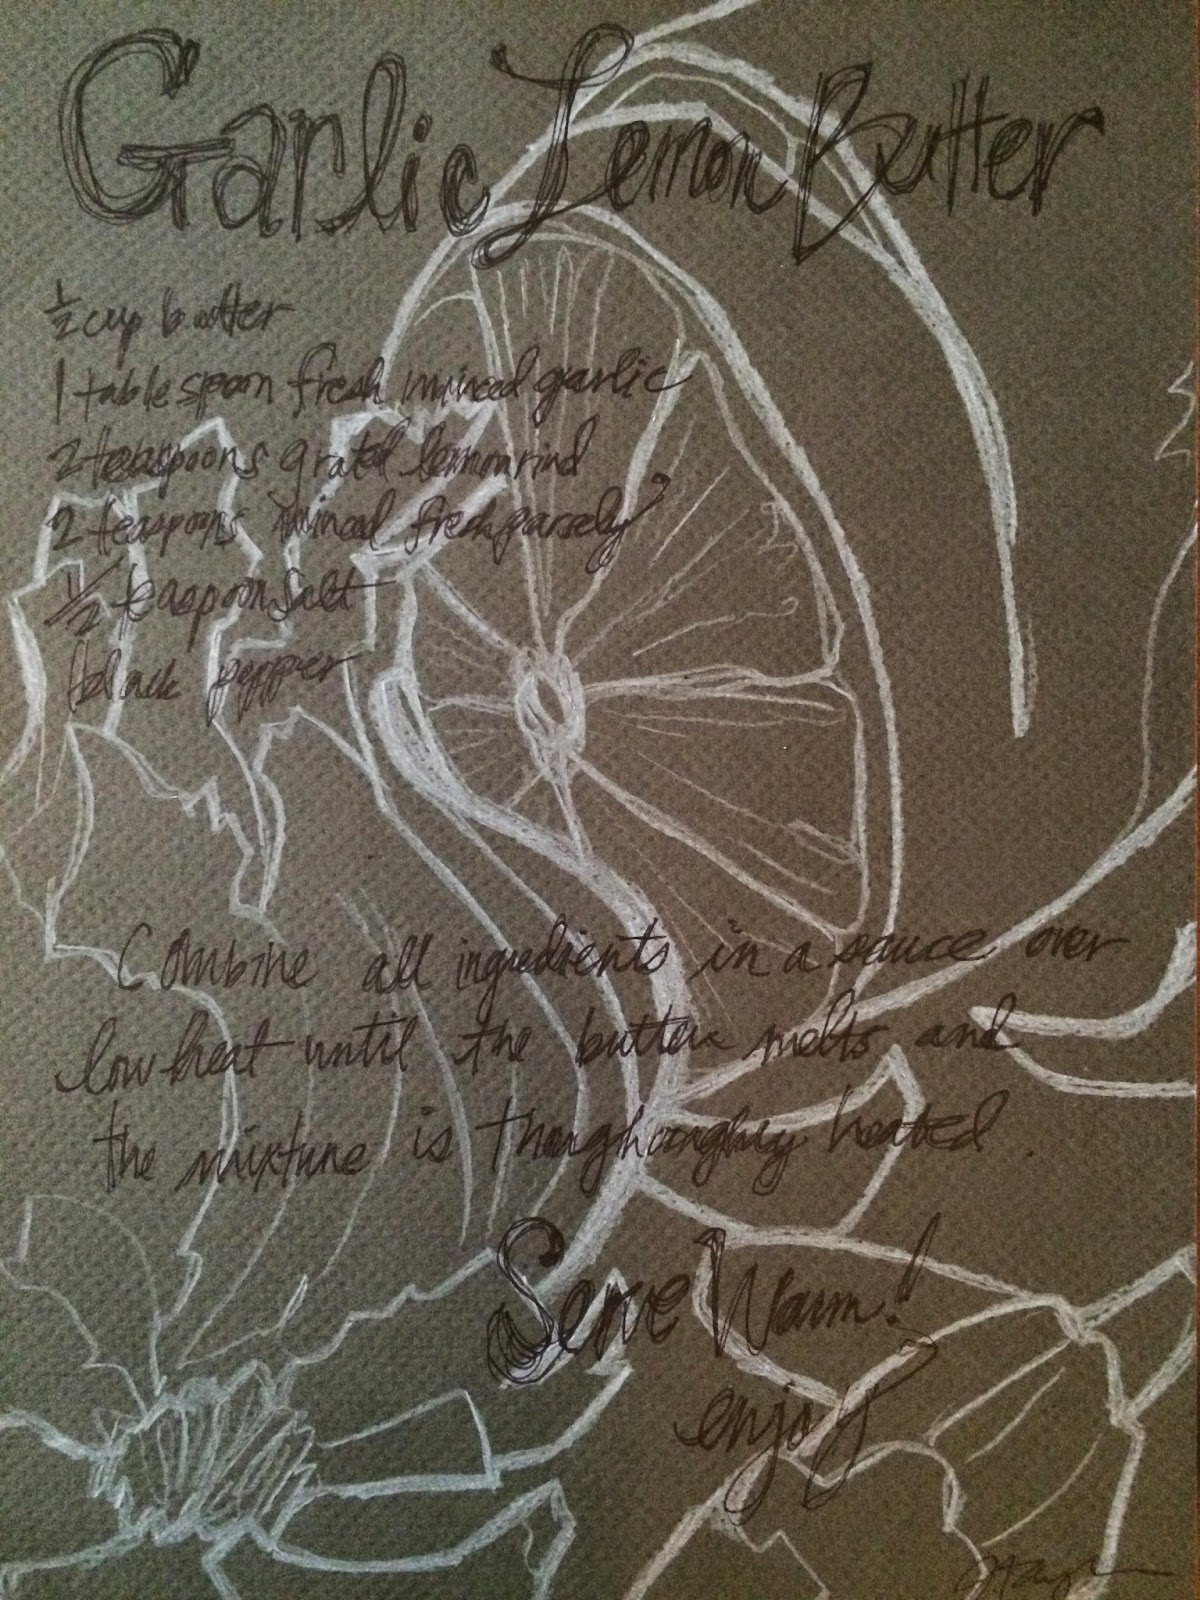 Garlic Lemon Butter
½ cup butter
1 tablespoon fresh minced garlic
2 teaspoons grated lemon rind
2 teaspoons minced fresh parsely
½ teaspoon salt
black pepper
Combine all ingredients in a sauce over
low heat until the butter melts and
the mixture is heated.
Serve Warm!
enjoy